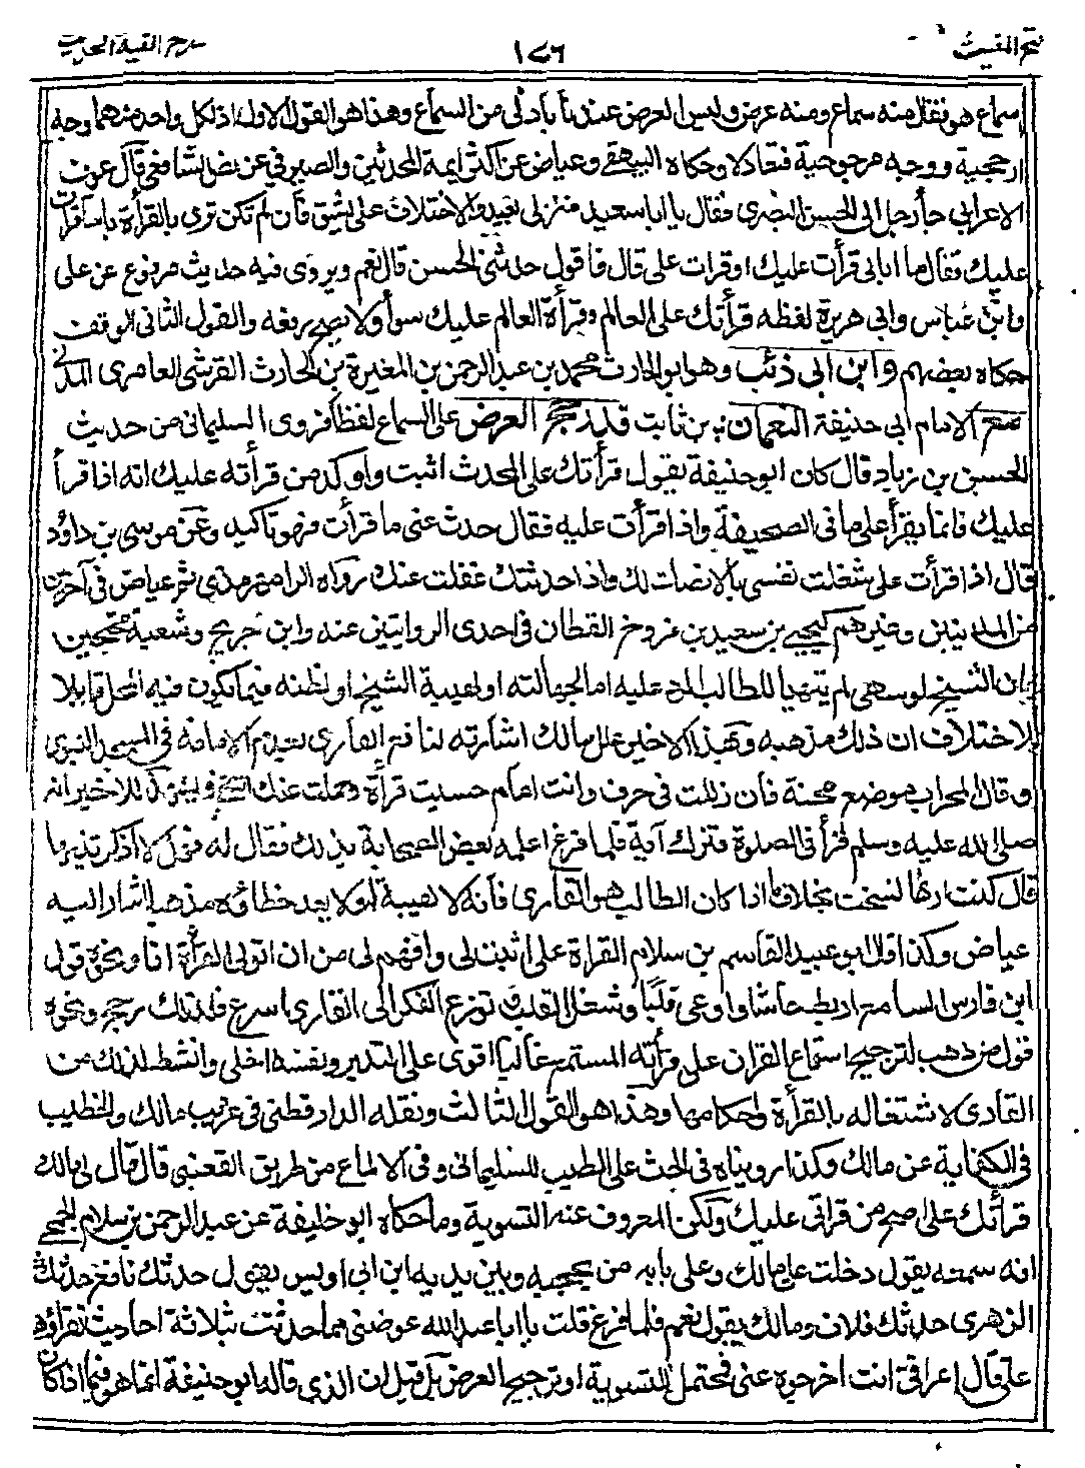 فتح المغيث ١٧٦ شرح الفية الحديث
سماع هو نقل منه سماع ومنه عرض وليس العرض عندنا بأدنى من السماع وهذا هو القول الاول اذ لكل واحد منهما وجه
ارجحية ووجه مرجوحية فتعادلا وحكاه البيهقي وعياض عن اكثر ايمة المحدثين والصيرفي عن نص الشافعي قال عوف
الاعرابي جاء رجل الى الحسن البصري فقال يا ابا سعيد منزلي بعيد والاختلاف علي يشق فان لم تكن ترى بالقرأة باسا قرأت
عليك فقال ما ابالي قرأت عليك او قرات علي قال فاقول حدثني الحسن قال نعم ويروى فيه حديث مرفوع عن علي
وابن عباس وابي هريرة لفظه قرأتك على العالم وقرأة العالم عليك سوأ ولا يصح رفعه والقول الثاني الوقف
حكاه بعضهم وابن ابي ذئب وهو ابو الحارث محمد بن عبد الرحمن بن المغيرة بن الحارث القرشي العامري المدني
مع الامام ابي حنيفة النعمان بن ثابت قد رجح العرض على السماع لفظا فروى السليماني من حديث
الحسن بن زياد قال كان ابو حنيفة يقول قرأتك على المحدث اثبت واوكد من قرأته عليك انه اذا قرأ
عليك فانما يقرأ على ما في الصحيفة واذا قرأت عليه فقال حدث عني ما قرأت فهو تاكيد وعن موسى بن داؤد
قال اذا قرأت علي شغلت نفسي بالانصات لك واذا حدثتك غفلت عنك رواه الرامهرمذي ثم عياض في آخرين
من المدينين وغيرهم كيحيى بن سعيد بن فروخ القطان في احدى الروايتين عنه وابن جريج وشعبة محتجين
بان الشيخ لو سهى لم يتهيا للطالب الرد عليه اما لجهالته او لهيبة الشيخ او لظنه فيما يكون فيه المحل قابلا
للاختلاف ان ذلك مذهبه وبهذا الاخير علل مالك اشارته لنافع القاري بعدم الامامة في المسجد النبوي
وقال المحراب موضع محنة فان زللت في حرف وانت امام حسبت قرأة وحملت عنك انتهى ويشهد للاخير انه
صلى الله عليه وسلم قرأ في الصلوة فترك آية فلما فرغ اعلمه بعض الصحابة بذلك فقال له فهلا اذكرتنيها
قال كنت اراها نسخت بخلاف ما اذا كان الطالب هو القاري فانه لا هيبة له ولا يعد خطاؤه مذهبا اشار اليه
عياض وكذا قال ابو عبيد القاسم بن سلام القراة علي اثبت لي وافهم لي من ان اتولى القرأة انا ونحوه قول
ابن فارس السامع اربط جاشا واوعى قلبا وشغل القلب وتوزع الفكر الى القاري اسرع فلذلك رجح ونحوه
قول من ذهب لترجيح استماع القران على قرأته المستمع غالبا اقوى على التدبر ونفسه اخلى وانشط لذلك من
القاري لاشتغاله بالقرأة واحكامها وهذا هو القول الثالث ونقله الدارقطني في غريب مالك والخطيب
في الكفاية عن مالك وكذا رويناه في الحث على الطلب للسليماني وفي الالماع من طريق القعنبي قال قال لي مالك
قرأتك علي اصح من قرأتي عليك ولكن المعروف عنه التسوية وما حكاه ابو خليفة عن عبد الرحمن بن سلام الجمحي
انه سمعه يقول دخلت على مالك وعلى بابه من يحجبه وبين يديه ابن ابي اويس يقول حدثك نافع حدثك
الزهري حدثك فلان ومالك يقول نعم فلما فرغ قلت يا ابا عبد الله عوضني مما حدثت بثلاثة احاديث تقرؤها
علي قال اعراقي انت اخرجوه عني فمحتمل للتسوية او ترجيح العرض بل قيل ان الذي قاله ابو حنيفة انما هو فيما اذا كان